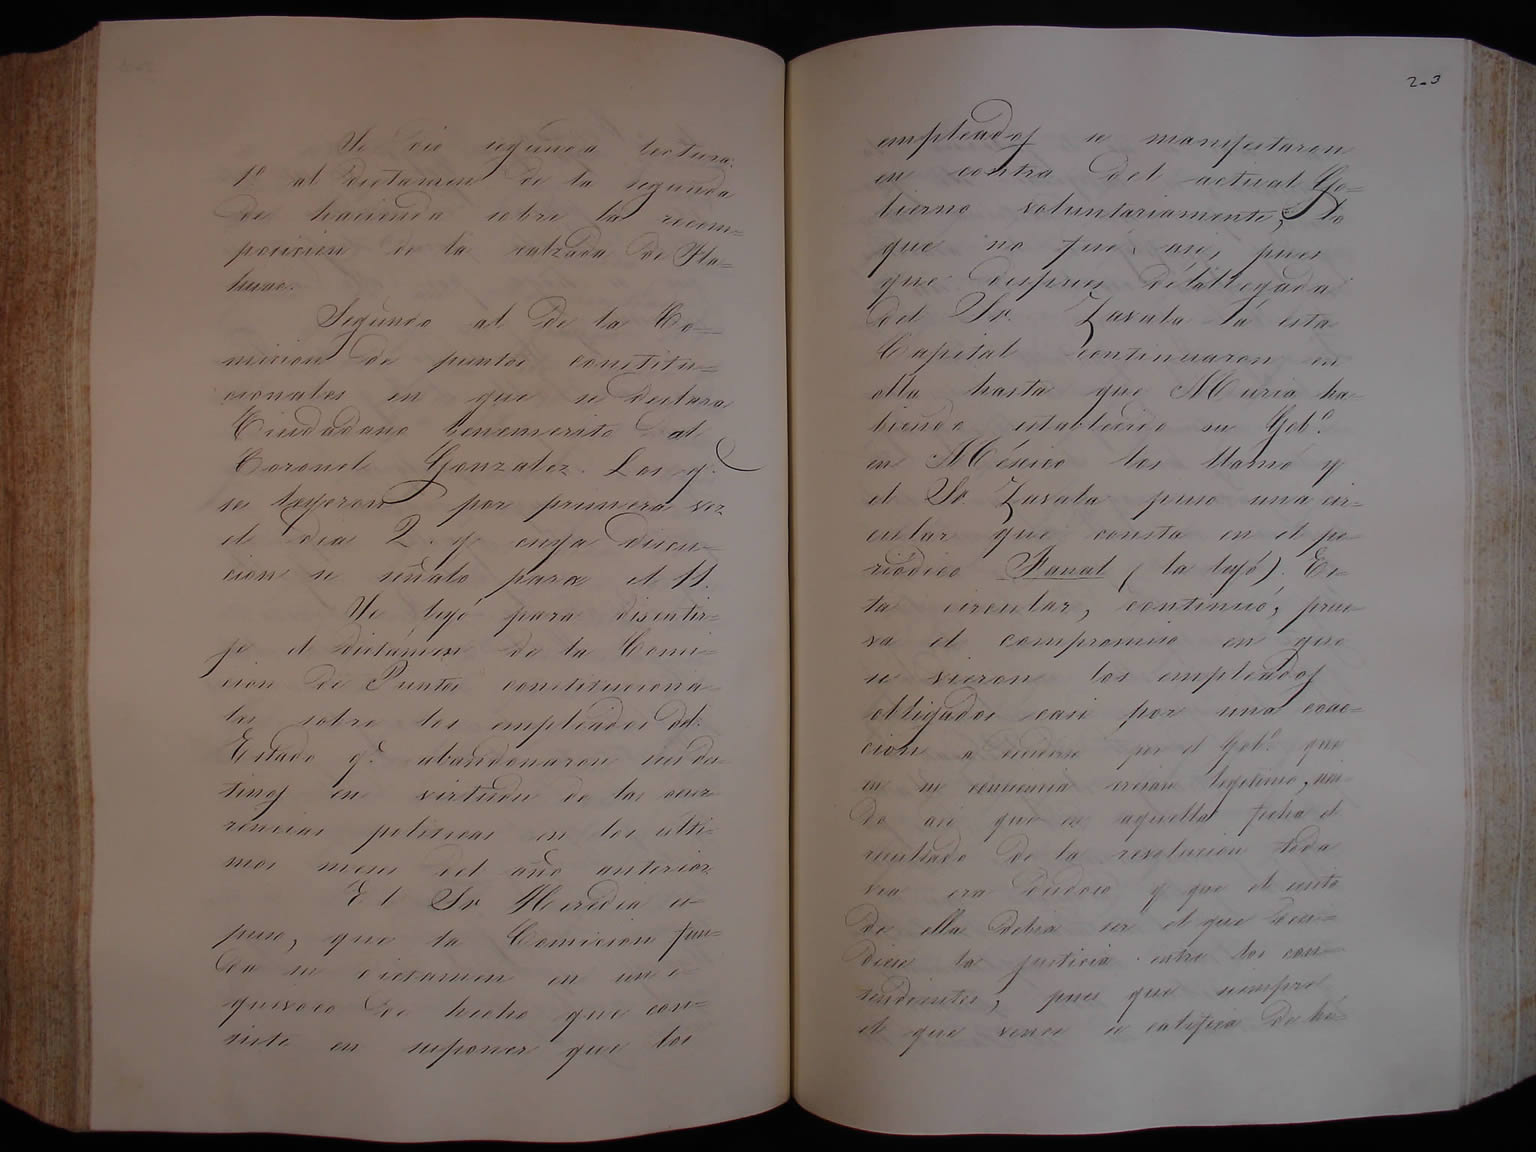 Se dio segunda lectura:
1º al dictamen de la segunda
de hacienda sobre la recom=
posicion de la calzada de Tla=
huac.
Segundo al de la Co-
mision de puntos constitu=
cionales en que se declara
Ciudadano benemerito al
Coronel Gonzalez. Los q.e
se leyeron por primera vez
el dia 2. y cuya discu=
cion se señalo para el 11.
Se leyó para discutir=
se el dictámen de la Comi=
cion de Puntos constituciona
les sobre los empleados del
Estado q.e abandonaron sus des
tinos en virtud de las ocur
rencias politicas en los ulti=
mos meses del año anterior
El Sr. Heredia es
puso, que la Comicion fun=
da su dictamen en un e=
quivoco de hecho que con=
siste en suponer que los
2-3
empleados se manifestaron
en contra del actual Go=
bierno voluntariamente, lo
que no fué asi, pues
que despues de la llegada
del Sr. Zavala á esta
Capital continuaron en
ella hasta que Muria ha=
biendo establecido su Gob.º
en México los llamó y
el Sr. Zavala puso una cir=
cular que consta en el pe
riódico Fanal (la leyó). Es=
ta circular, continuó, prue
va el compromiso en que
se vieron los empleados
obligados casi por una coac=
cion a unirse por el Gob.º que
en su conciencia creian legitimo, sien
do asi que en aquella fecha el
resultado de la revolucion toda
via era dudoso y que el exito
de ella debia ser el que deci=
diese la justicia entre los con=
tendientes, pues que siempre
el que vence se califica de hé=